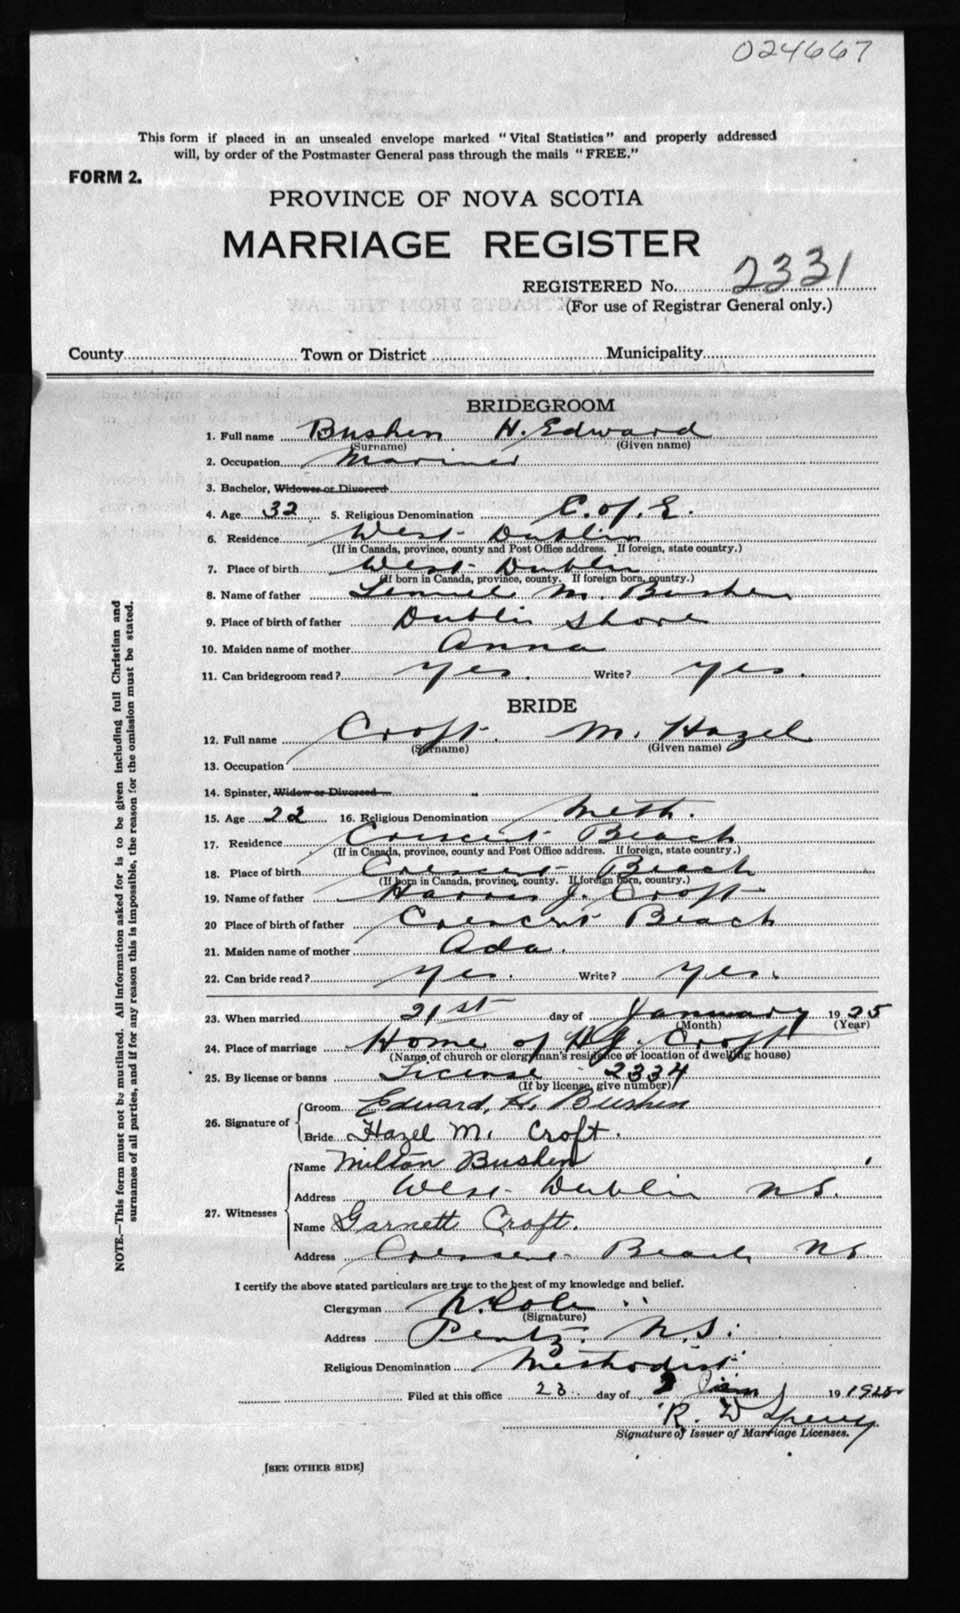 024667
This form if placed in an unsealed envelope marked "Vital Statistics" and properly addressed
will, by order of the Postmaster General pass through the mails "FREE."
FORM 2.
PROVINCE OF NOVA SCOTIA
MARRIAGE REGISTER
REGISTERED No. 2331
(For use of Registrar General only.)
County Town or District Municipality
BRIDEGROOM
1. Full name Bushen H. Edward
(Surname) (Given name)
2. Occupation Mariner
3. Bachelor, Widower or Divorced
4. Age 32 5. Religious Denomination C. of E.
6. Residence West Dublin
(If in Canada, province, county and Post Office address. If foreign, state country.)
7. Place of birth West Dublin
(If born in Canada, province, county. If foreign born, country.)
8. Name of father Lemuel M. Bushen
9. Place of birth of father Dublin Shore
10. Maiden name of mother Anna
11. Can bridegroom read? yes. Write? yes.
BRIDE
12. Full name Croft. M. Hazel
(Surname) (Given name)
13. Occupation
14. Spinster, Widow or Divorced
15. Age 22 16. Religious Denomination Meth.
17. Residence Crescent Beach
(If in Canada, province, county and Post Office address. If foreign, state country.)
18. Place of birth Crescent Beach
(If born in Canada, province, county. If foreign born, country.)
19. Name of father Harris J. Croft
20 Place of birth of father Crescent Beach
21. Maiden name of mother Ada.
22. Can bride read? yes. Write? yes.
23. When married 21st day of January 1925
(Month) (Year)
24. Place of marriage Home of H.J. Croft
(Name of church or clergyman's residence or location of dwelling house)
25. By license or banns License 2334
(If by license, give number)
26. Signature of Groom Edward. H. Bushen
Bride Hazel M. Croft.
27. Witnesses Name Milton Bushen
Address West Dublin N.S.
Name Garnett Croft.
Address Crescent Beach, N.S
I certify the above stated particulars are true to the best of my knowledge and belief.
Clergyman Cole
(Signature)
Address Pentz. N.S.
Religious Denomination Methodist
Filed at this office 23. day of Jan 19 1925
R. W Sperry
Signature of Issuer of Marriage Licenses.
[SEE OTHER SIDE]
NOTE.—This form must not be mutilated. All information asked for is to be given including full Christian and
surnames of all parties, and if for any reason this is impossible, the reason for the omission must be stated.